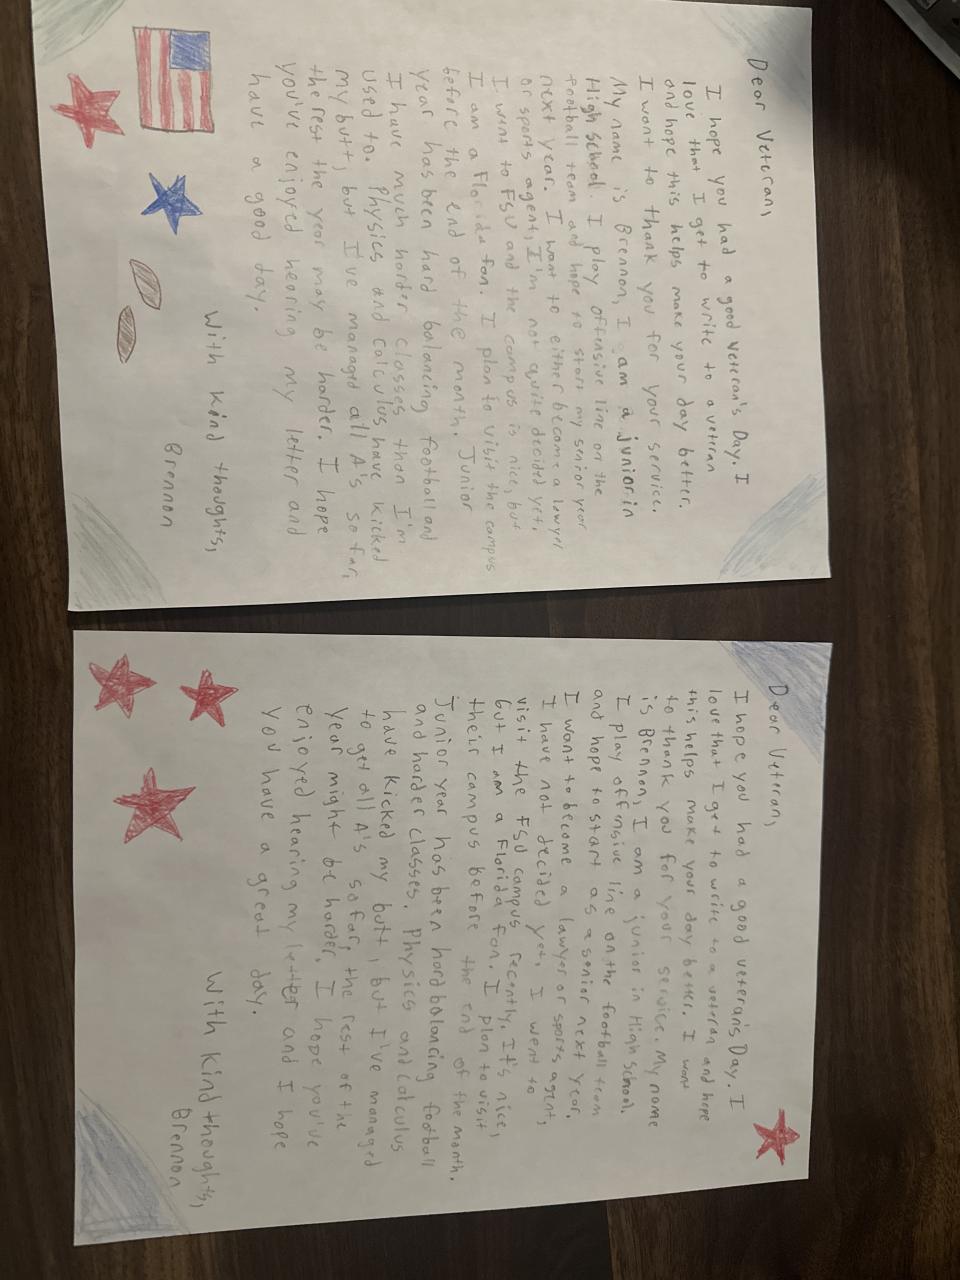 Dear Veteran,
I hope you had a good Veteran's Day. I
love that I get to write to a veteran
and hope this helps make your day better.
I want to thank you for your service.
My name is Brennon, I am a junior in
High School. I play offensive line on the
football team and hope to start my senior year
next year. I want to either become a lawyer
or sports agent, I'm not quite decided yet.
I went to FSU and the campus is nice, but
I am a Florida fan. I plan to visit the campus
before the end of the month. Junior
year has been hard balancing football and
I have much harder classes than I'm
used to. Physics and calculus have kicked
my butt, but I've managed all A's so far,
the rest the year may be harder. I hope
you've enjoyed hearing my letter and
have a good day.
With kind thoughts,
Brennon
Dear Veteran,
I hope you had a good veteran's Day. I
love that I get to write to a veteran and hope
this helps make your day better. I want
to thank you for your service. My name
is Brennon, I am a junior in High School.
I play offensive line on the football team
and hope to start as a senior next year.
I want to become a lawyer or sports agent,
I have not decided yet. I went to
visit the FSU campus recently. It's nice,
but I am a Florida fan. I plan to visit
their campus before the end of the month.
Junior year has been hard balancing football
and harder classes. Physics and Calculus
have kicked my butt, but I've managed
to get all A's so far, the rest of the
year might be harder. I hope you've
enjoyed hearing my letter and I hope
you have a great day.
With kind thoughts,
Brennon